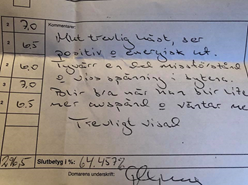 7,0 Kommentarer
6,5 Mkt trevlig häst, ser
positiv o energisk ut.
6,0 Tyvärr en del missförstånd
o spänning i bytena.
7,0 blir bra när han blir lite
6,5 mer avspänd o väntar mer
Trevligt visad
296,5 Slutbetyg i %: 64,457%
Domarens underskrift: